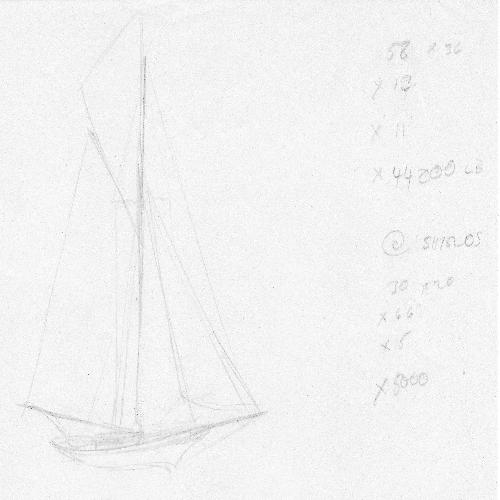 58 x 36
x 12
x 11'
x 44000 LB
@ SHIELDS
30 x 20
x 6'6"
x 5
x 5000